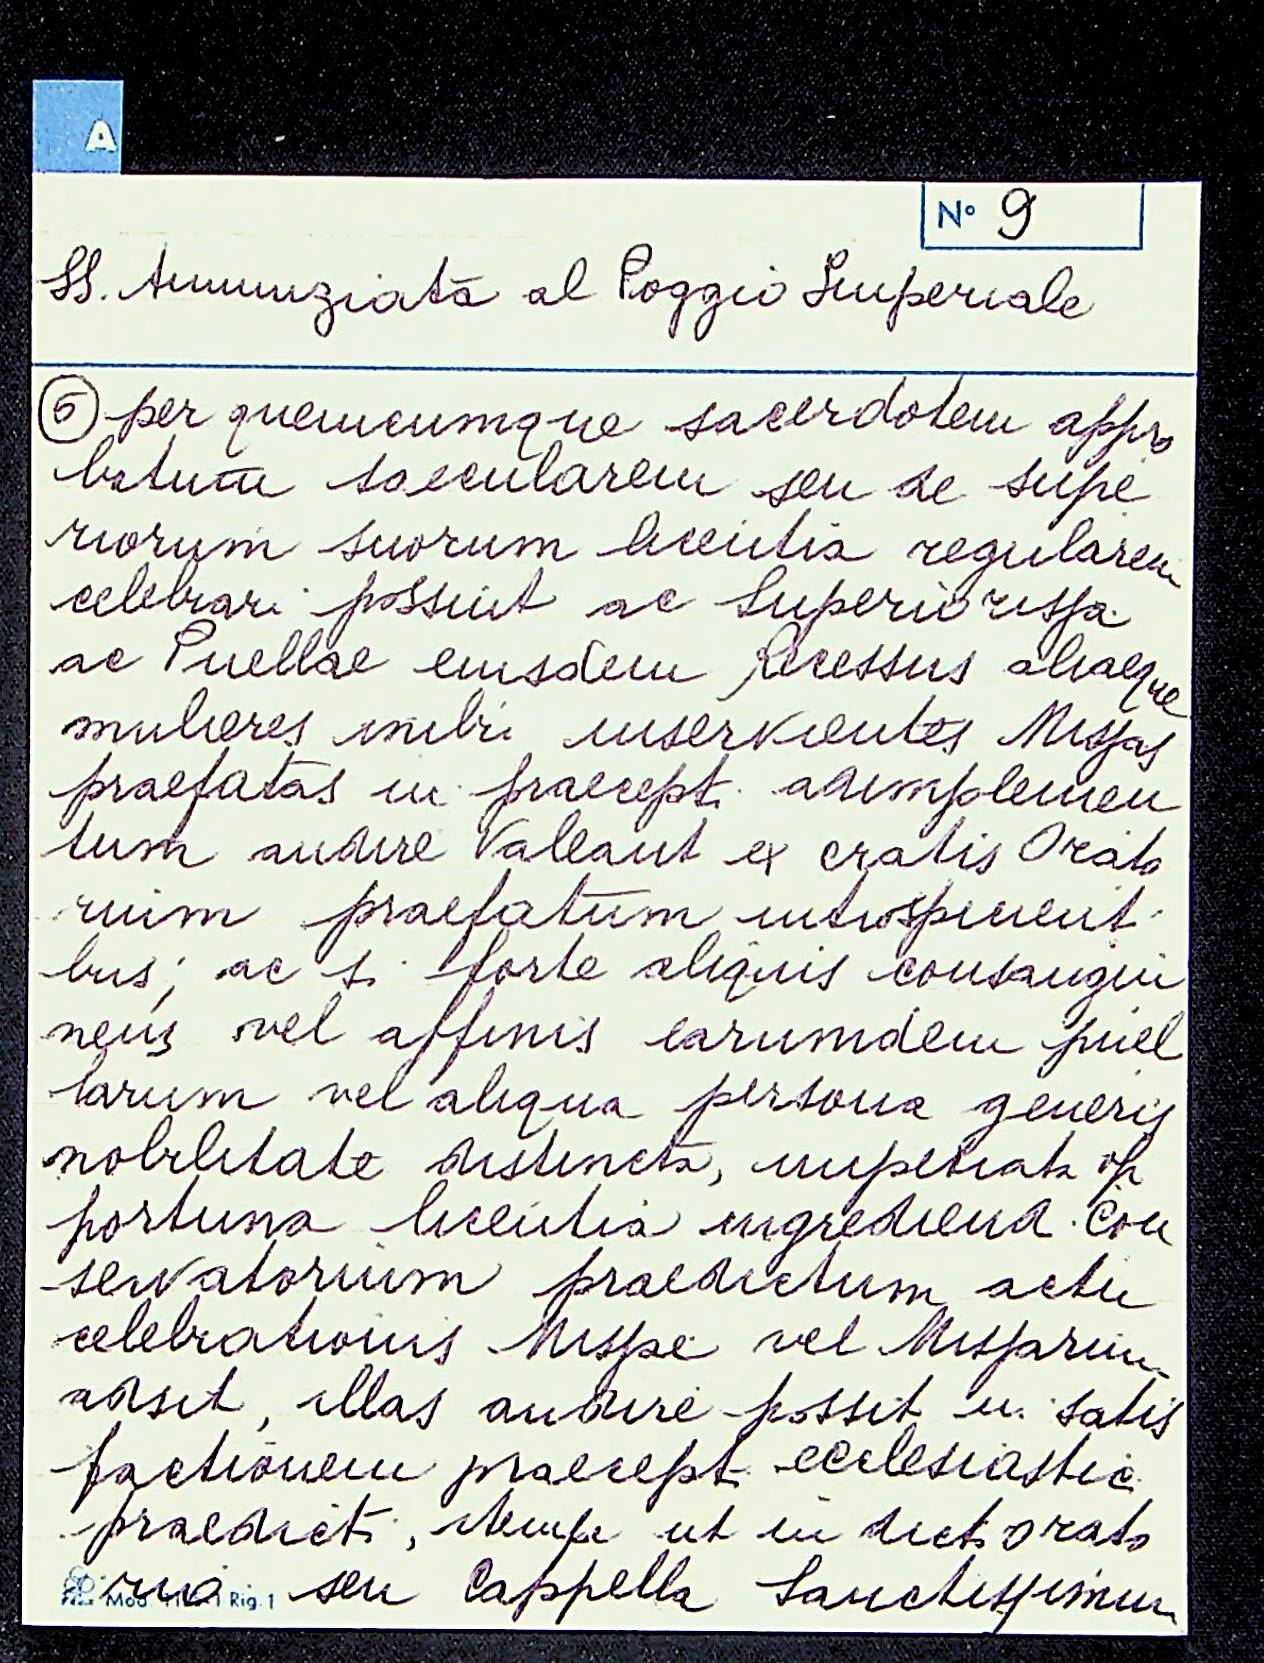 A
N° 9
SS. Annunziata al Poggio Imperiale
5 per quemcumque sacerdotem appro
batum saecularem seu de supe
riorum suorum licentia regularem
celebrari possint ac Superiorissa
ac Puellae eiusdem Recessus aliaeque
mulieres inibi inservientes Missas
praefatas in praecepti adimplemen
tum audire valeant ex cratis Orato
rium praefatum introspicienti
bus; ac si forte aliquis consangui
neus vel affinis earumdem puel
larum vel aliqua persona generis
nobilitate distincta, impetrata op
portuna licentia ingrediendi Con
servatorium praedictum actu
celebrationis Missae vel Missarum
adsit, illas audire possit in satis
factionem praecepti ecclesiastici
praedicti, itemque ut in dicto orato
rio seu Cappella Sanctissimum
Mod. Rig. 1